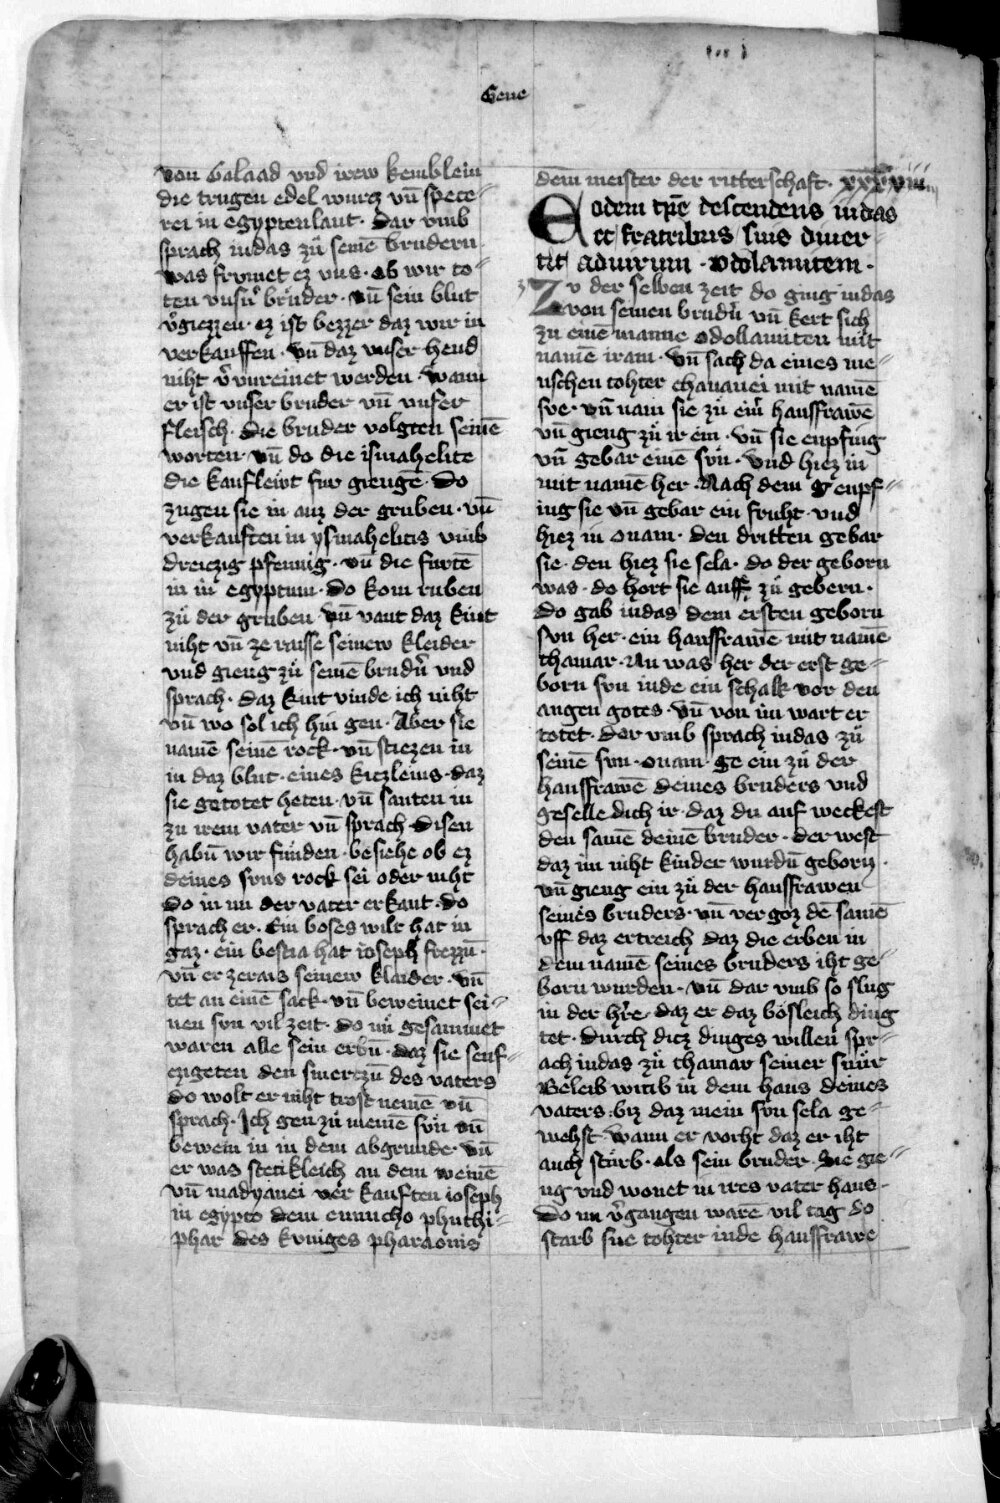 Gene
von Galaad vnd irew kemblein
die trugen edel wurcz vn̄ spece⸗
rei in egyptenlant · Dar vmb
sprach iudas zů seinē brudern
was frumet ez vns · ob wir to⸗
ten vnsn̄ bruͤder · vn̄ sein blut
v̄giezzen · ez ist bezzer daz wir in
verkauffen · vn̄ daz vnser hend
niht v̄vnreinet werden · wann
er ist vnser bruder vn̄ vnser
fleisch · die bruder volgten seinē
worten · vn̄ do die ismahelite
die kaufleẘt fur giengē · Do
zugen sie in auz der gruben · vn̄
verkauften in ysmahelitis vmb
dreizzig pfennig · vn̄ die furtē
in in egyptum · Do kom ruben
zů der gruben · vn̄ vant daz kint
niht vn̄ ze raisse seinew kleider
vnd gieng zů seinē brudn̄ vnd
sprach · daz kint vinde ich niht
vn̄ wo sol ich hin gen · Aber sie
namē seine rock · vn̄ stiezen in
in daz blut · eines kiczleins · daz
sie getotet heten · vn̄ santen in
zu irem vater vn̄ sprach · Disen
habn̄ wir funden · besiehe ob ez
deines suns rock sei oder niht
Do in nu der vater erkant · do
sprach er · Ein boses wilt hat in
gaz · ein bestia hat ioseph frezzn̄ ·
vn̄ er zerais seinew klaider · vn̄
tet an einē sack · vn̄ beweinet sei⸗
nen sun vil zeit · do nů gesammet
waren alle sein erbn̄ · daz sie senf⸗
czigeten den smerczn̄ des vaters
do wolt er niht trost nemē vn̄
sprach · Ich gen zů meinē sun vn̄
bewein in in dem abgrunde · vn̄
er was stetikleich an dem weinē
vn̄ madyanei ver kauften ioseph
in egypto dem eunucho phuthi⸗
phar des kuniges pharaonis
dem meister der ritterschaft ·
Eodem tp̄e descendens iudas
et fratribus suis diuer⸗
tit ad uirum · odolamitem ·
Zv der selben zeit do ging iudas
von seinen brudn̄ vn̄ kert sich
zu einē manne odollamiten mit
namē iram · vn̄ sach da eines me⸗
nschen tohter chananei mit namē
sve · vn̄ nam sie zů ein̄ hausfrawē
vn̄ gieng zů ir ein · vn̄ sie enpfing
vn̄ gebar einē sun · vnd hiez in
mit namē her · Nach dem enpf⸗
ing sie vn̄ gebar ein fruht · vnd
hiez in onam · den dritten gebar
sie · den hiez sie sela · do der geborn
was · do hort sie auff zů gebern ·
Do gab iudas dem ersten geborn
sun her · ein hausfrawē mit namē
thamar · Nu was her der erst ge⸗
born sun iude ein schalk vor den
augen gotes · vn̄ von im wart er
totet · Dar vmb sprach iudas zů
seinē sun · onam · ge ein zů der
hausfrawē deines bruders vnd
geselle dich ir · daz du auf weckest
den samē deinē bruder · der west
daz im niht kinder wurdn̄ geborn ·
vn̄ gieng ein zů der hausfrawen
seines bruders · vn̄ vergoz dē samē
vff daz ertreich daz die erben in
dem namē seines bruders iht ge⸗
born wurden · vn̄ dar vmb so slug
in der h̄re · daz er daz bösleich ding
tet · Durch dicz dinges willen spr⸗
ach iudas zů thamar seiner snůr
Beleib witib in dem haus deines
vaters · biz daz mein sun sela ge⸗
wehst · wann er vorht daz er iht
auch sturb · als sein bruder · Sie gie⸗
ng vnd wonet in ires vater haus ·
Do nu v̄gangen warē vil tag do
starb sue tohter iude hausfrawe